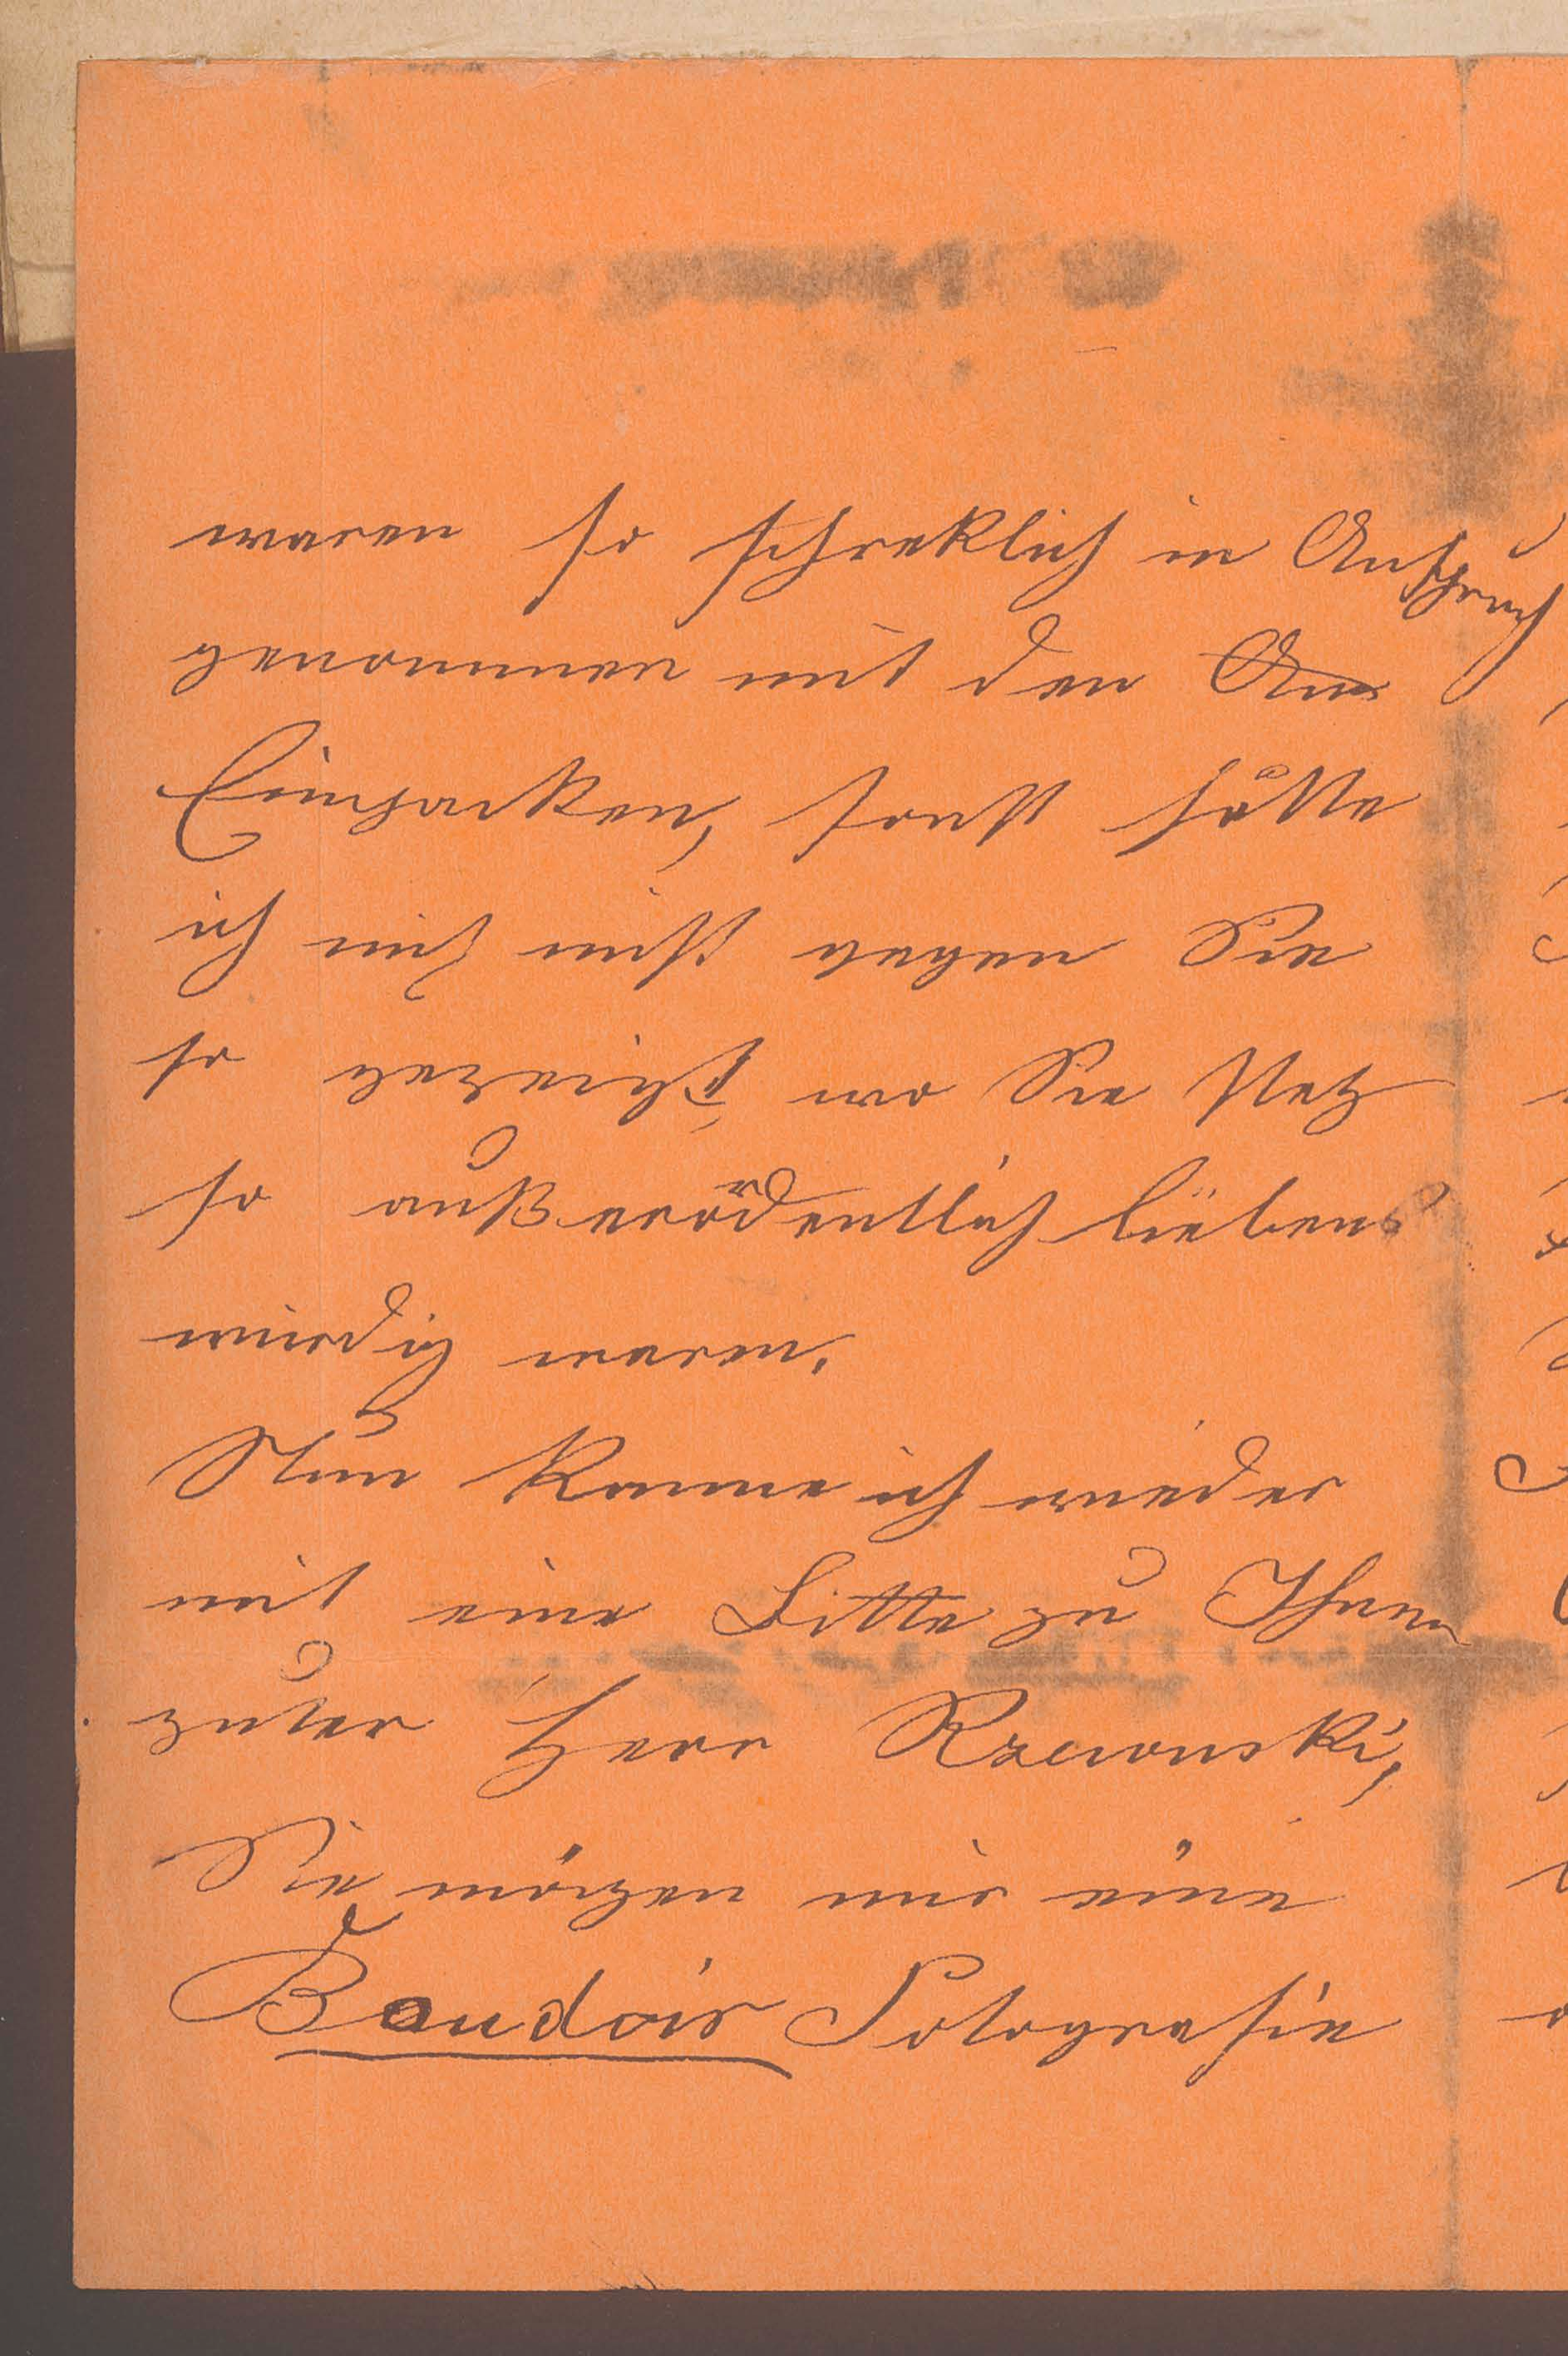 waren so schreklich in Anspruch
genommen mit den Aus
Einpacken, sonst hätte
ich mich nicht gegen Sie
so gezeigt, wo Sie stetz
so außerordentlich liebens
würdig waren.
Nun komme ich wieder
mit eine Bitte zu Ihnen
guter Herr Rzewuski,
Sie mögen mir eine
Boudoir Fotografie